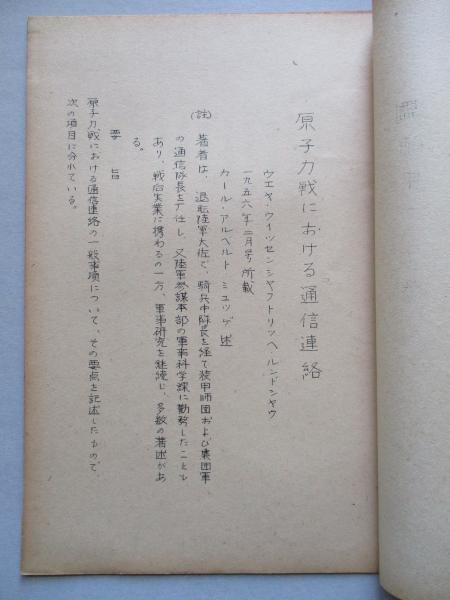 原子力戦における通信連絡
ウエヤ・ウイッセンシヤフトリッヘルンドシヤウ
一九五六年二月号所載
カール・アルベルト ミュッゲ 述
(註) 著者は、退転陸軍大佐で、騎兵中隊長を経て装甲師団および集団軍
の通信隊長を歴任し、又陸軍参謀本部の軍事科学課に勤務したことも
あり、戦后実業に携わるの一方、軍事研究を継続し、多数の著述があ
る。
要旨
原子力戦における通信連絡の一般事項について、その要点を記述したもので、
次の項目に分れている。